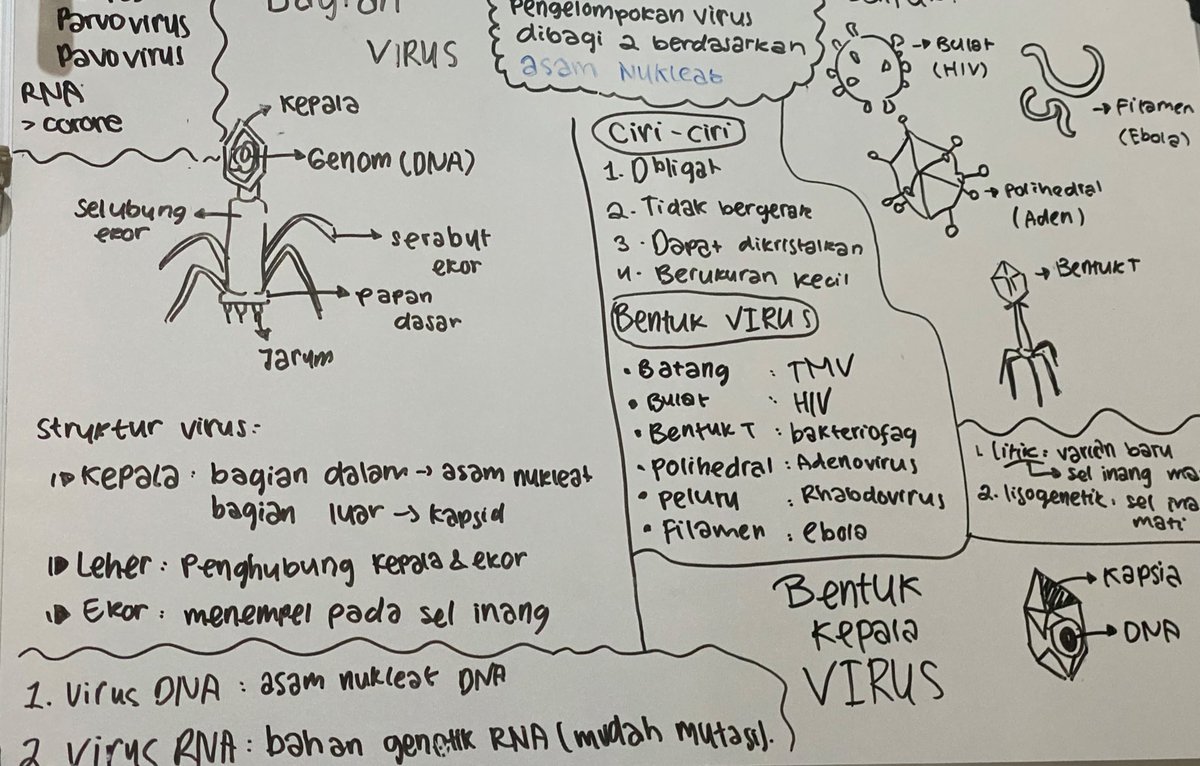 Parvovirus
Pavovirus
RNA
> corone
Bagian
VIRUS
Kepala
Genom (DNA)
selubung
ekor
serabut
ekor
papan
dasar
Jarum
struktur virus:
Kepala : bagian dalam → asam nukleat
bagian luar → kapsid
Leher : Penghubung kepala & ekor
Ekor : menempel pada sel inang
1. Virus DNA : asam nukleat DNA
2 Virus RNA : bahan genetik RNA (mudah mutasi).
Pengelompokan virus
dibagi 2 berdasarkan
asam nukleat
Ciri-ciri
1. Obligat
2. Tidak bergerak
3. Dapat dikristalkan
4. Berukuran kecil
Bentuk VIRUS
• Batang : TMV
• Bulat : HIV
• Bentuk T : bakteriofag
• Polihedral : Adenovirus
• peluru : Rhabdovirus
• Filamen : ebola
→ Bulat
(HIV)
→ Filamen
(Ebola)
→ Polihedral
(Aden)
→ Bentuk T
1. Litik : varian baru
→ sel inang ma
2. lisogenetik : sel
mati
Bentuk
kepala
VIRUS
Kapsid
DNA